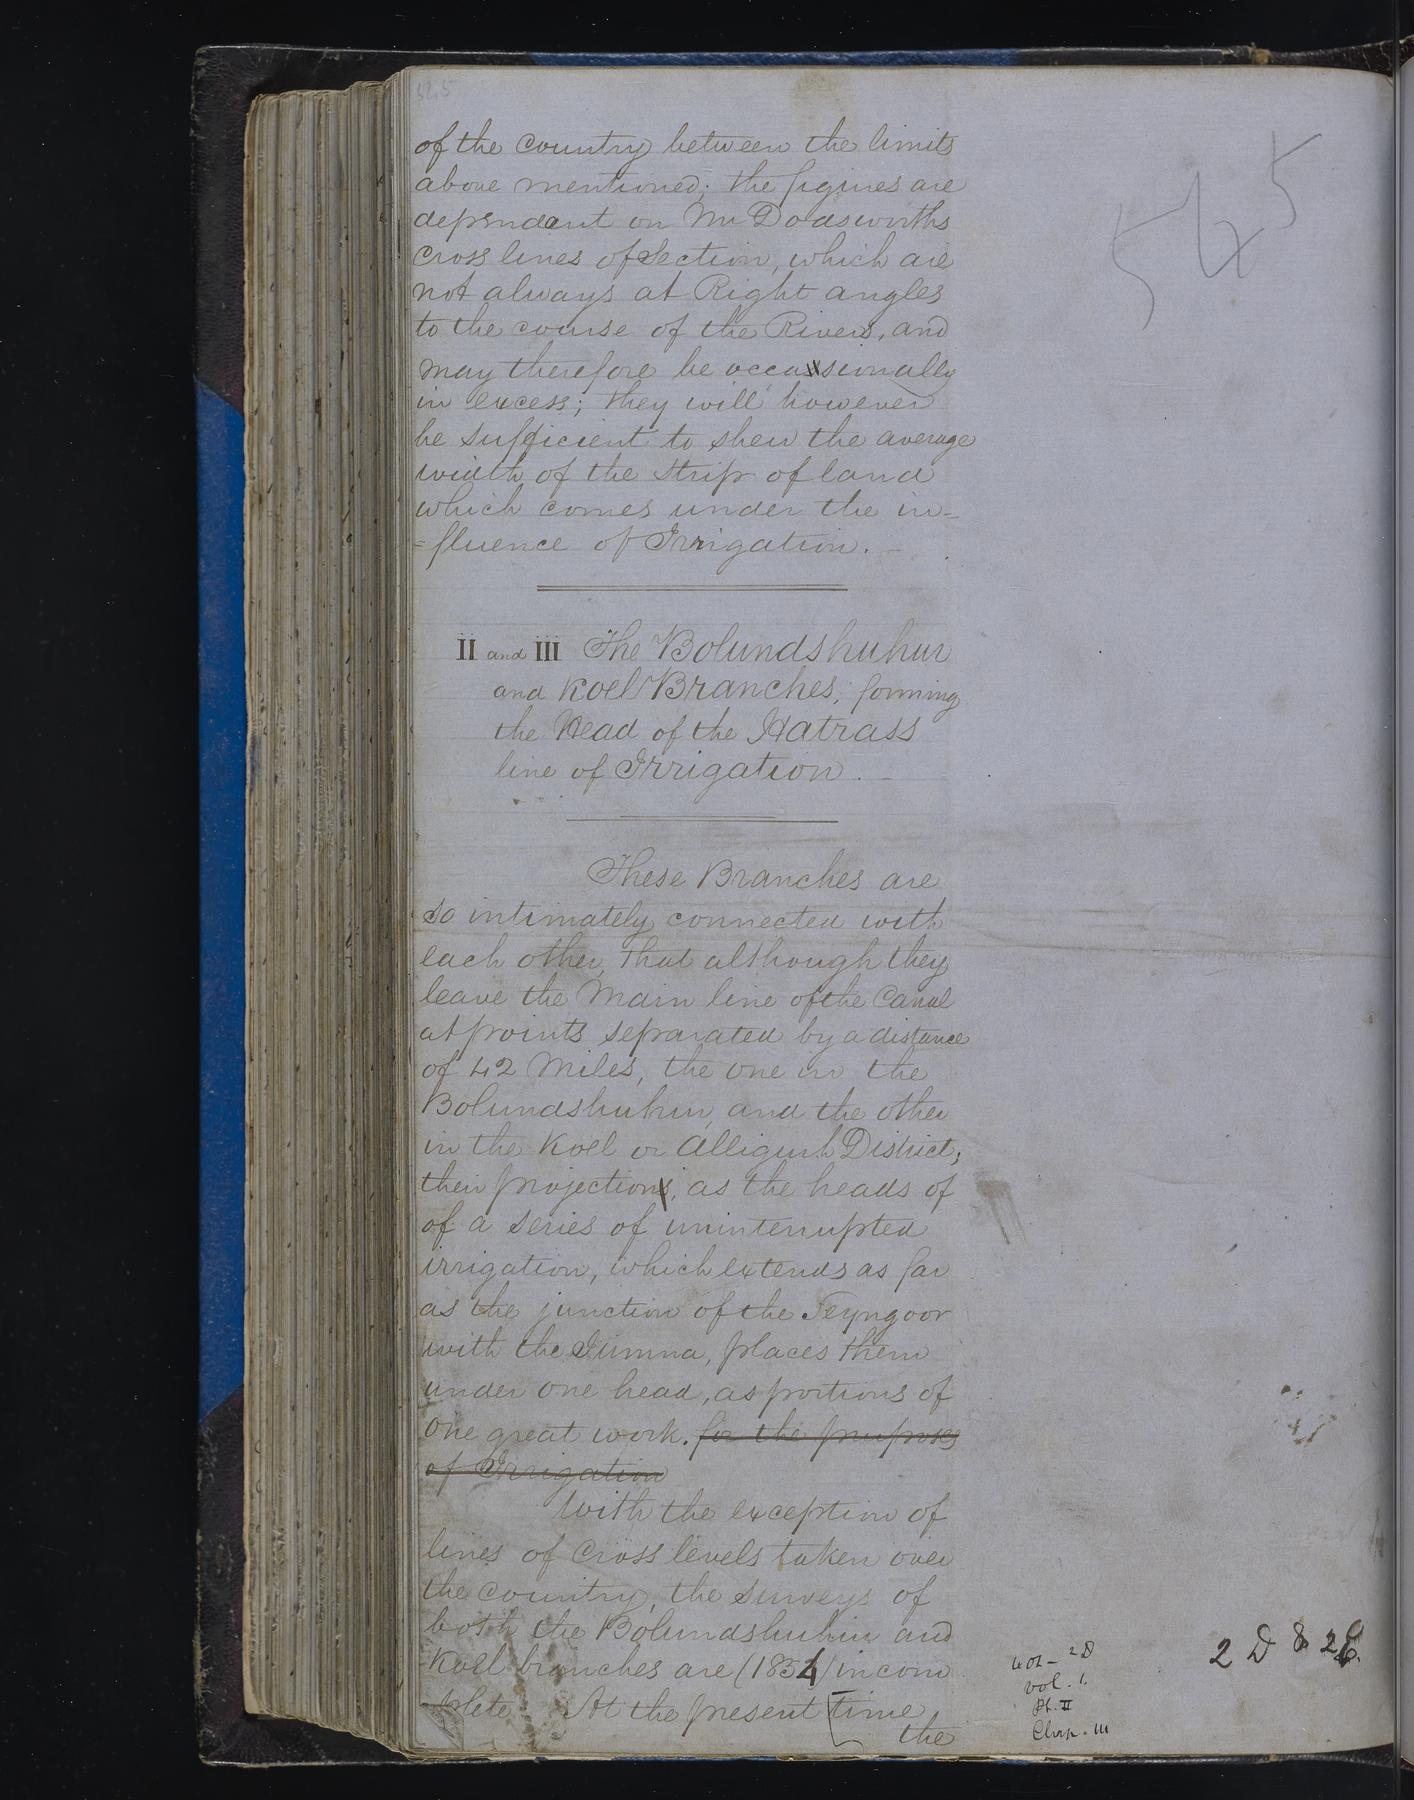 545
545
of the Country between the limits
above mentioned; the figures are
dependant on Mr Dodsworths
cross lines of Section, which are
not always at Right angles
to the course of the Rivers, and
may therefore be occassionally
in excess; they will however
be sufficient to shew the average
width of the strip of land
which comes under the in-
=fluence of Irrigation. -
II and III The Bolundshuhur
and Koel Branches, forming
the Head of the Hatrass
line of Irrigation. -
These Branches are
so intimately connected with
each other, that although they
leave the Main line of the Canal
at points separated by a distance
of 42 Miles, the one in the
Bolundshuhur, and the other
in the Koel or Alligurh District;
their projections, as the heads of
of a series of uninterrupted
irrigation, which extends as far
as the junction of the Seyngoor
with the Jumna, places them
under one head, as portions of
one great work. for the purposes
of Irrigation
With the exception of
lines of Cross levels taken over
the country, the surveys of
both the Bolundshuhur and
Koel branches are (1854) incom
plete. At the present [time
the
402 - 2D
vol. 1.
Pt. II
Chap. III
2 D & 2E.